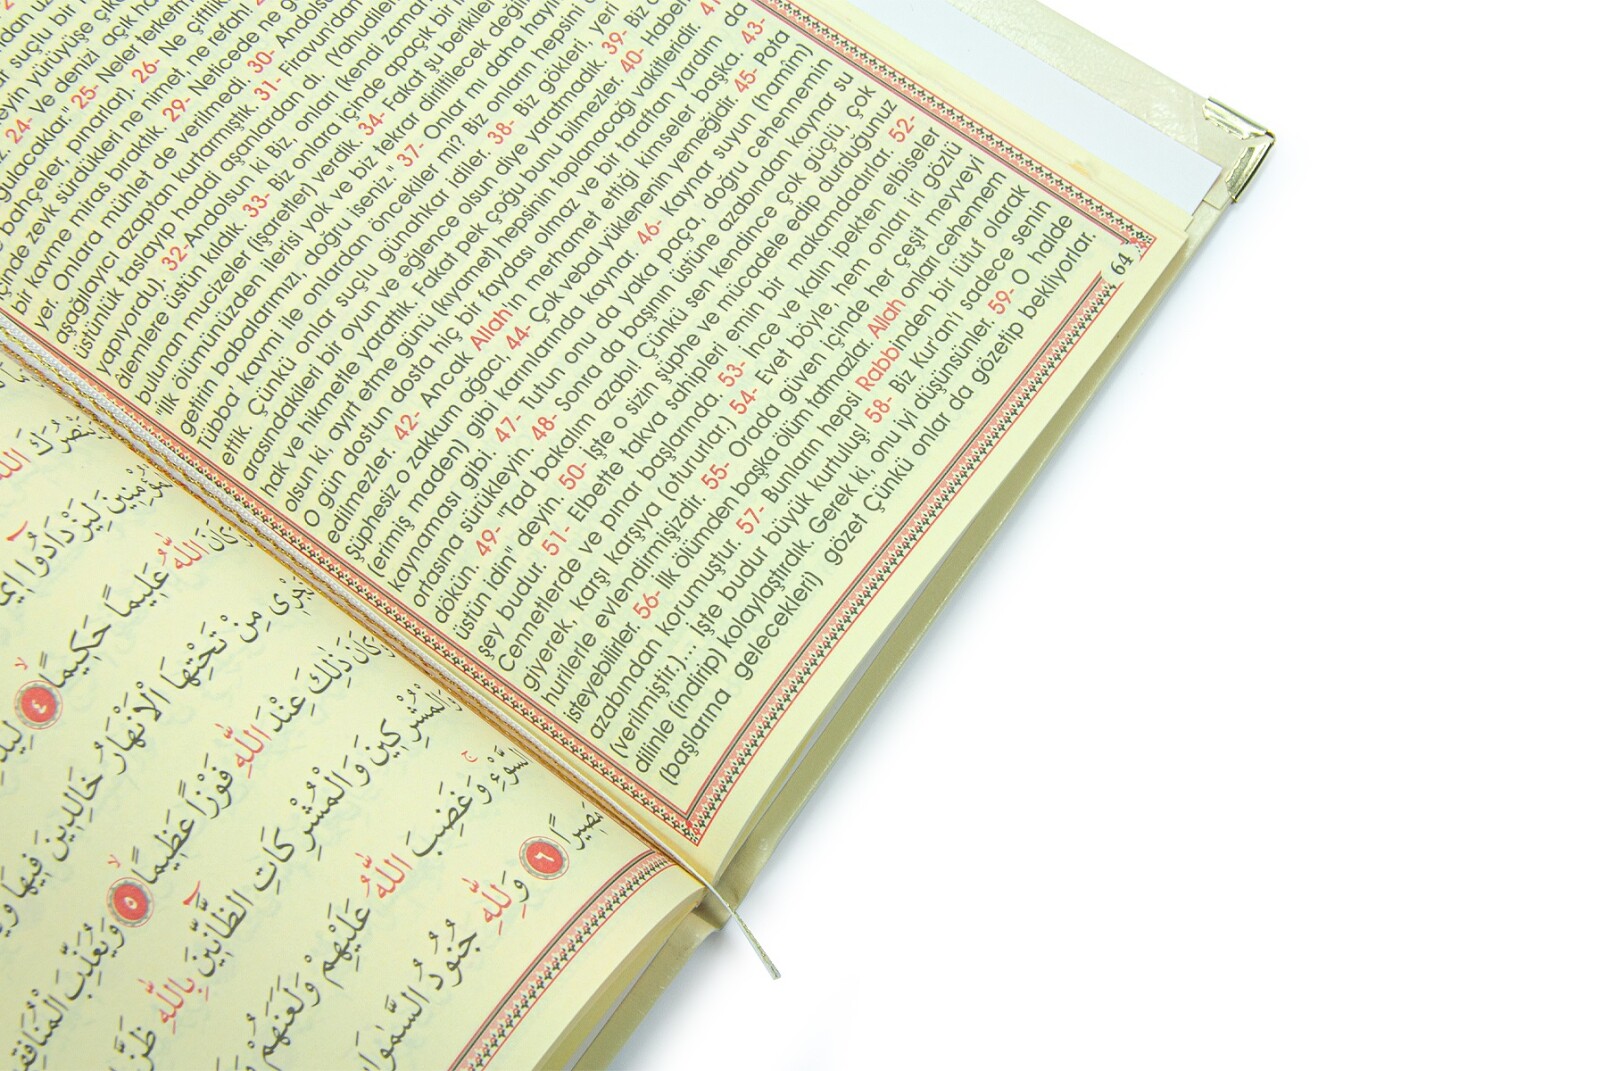 24- Ve denizi açık
25- Neler terketm
bahçeler, pınarlar). 26- Ne çiftlik
içinde zevk sürdükleri ne nimet, ne refah!
bir kavme miras bıraktık. 29- Neticede ne
yer. Onlara mühlet de verilmedi. 30- Andols
aşağılayıcı azaptan kurtarmıştık. 31- Firavun'dan
üstünlük taslayıp haddi aşanlardan dı. (Yahudi
yapıyordu). 32-Andolsun ki Biz, onları (kendi zaman
âlemlere üstün kıldık. 33- Biz onlara içinde apaçık bir
bulunan mucizeler (işaretler) verdik. 34- Fakat şu berikiler
"ilk ölümünüzden ilerisi yok ve biz tekrar diriltilecek değil
getirin babalarımızı, doğru iseniz." 37- Onlar mı daha hayır
Tübba' kavmi ile onlardan öncekiler mi? Biz onların hepsini
ettik. Çünkü onlar suçlu günahkar idiler. 38- Biz gökleri, yeri
arasındakileri bir oyun ve eğlence olsun diye yaratmadık. 39- Biz
hak ve hikmetle yarattık. Fakat pek çoğu bunu bilmezler. 40- Haber
olsun ki, ayırt etme günü (kıyamet) hepsinin toplanacağı vakitleridir. 41
O gün dostun dosta hiç bir faydası olmaz ve bir taraftan yardım da
edilmezler. 42- Ancak Allah'ın merhamet ettiği kimseler başka. 43-
Şüphesiz o zakkum ağacı, 44- Çok vebal yüklenenin yemeğidir. 45- Pota
(erimiş maden) gibi karınlarında kaynar. 46- Kaynar suyun (hamim)
kaynaması gibi. 47- Tutun onu da yaka paça, doğru cehennemin
ortasına sürükleyin. 48- Sonra da başının üstüne azabından kaynar su
dökün. 49- "Tad bakalım azabı! Çünkü sen kendince çok güçlü, çok
üstün idin" deyin. 50- İşte o sizin şüphe ve mücadele edip durduğunuz
şey budur. 51- Elbette takva sahipleri emin bir makamdadırlar. 52-
Cennetlerde ve pınar başlarında. 53- İnce ve kalın ipekten elbiseler
giyerek, karşı karşıya (otururlar.) 54- Evet böyle, hem onları iri gözlü
hurilerle evlendirmişizdir. 55- Orada güven içinde her çeşit meyveyi
isteyebilirler. 56- İlk ölümden başka ölüm tatmazlar. Allah onları cehennem
azabından korumuştur. 57- Bunların hepsi Rabbinden bir lütuf olarak
(verilmiştir.)... İşte budur büyük kurtuluş! 58- Biz Kur'an'ı sadece senin
dilinle (indirip) kolaylaştırdık. Gerek ki onu iyi düşünsünler. 59- O halde
(başlarına gelecekleri) gözet Çünkü onlar da gözetip bekliyorlar.
64
اللّٰهُ عَلِيمًا حَكِيمًا ٤
تَجْرِى مِنْ تَحْتِهَا الْاَنْهَارُ خَالِدِينَ فِيهَا
وَكَانَ ذٰلِكَ عِنْدَ اللّٰهِ فَوْزًا عَظِيمًا ٥ وَيُعَذِّبَ الْمُنَافِقِ
وَالْمُشْرِكِينَ وَالْمُشْرِكَاتِ الظَّانِّينَ بِاللّٰهِ ظَنَّ
السَّوْءِ وَغَضِبَ اللّٰهُ عَلَيْهِمْ وَلَعَنَهُمْ
مَصِيرًا ٦ وَلِلّٰهِ جُنُودُ السَّمٰوَاتِ